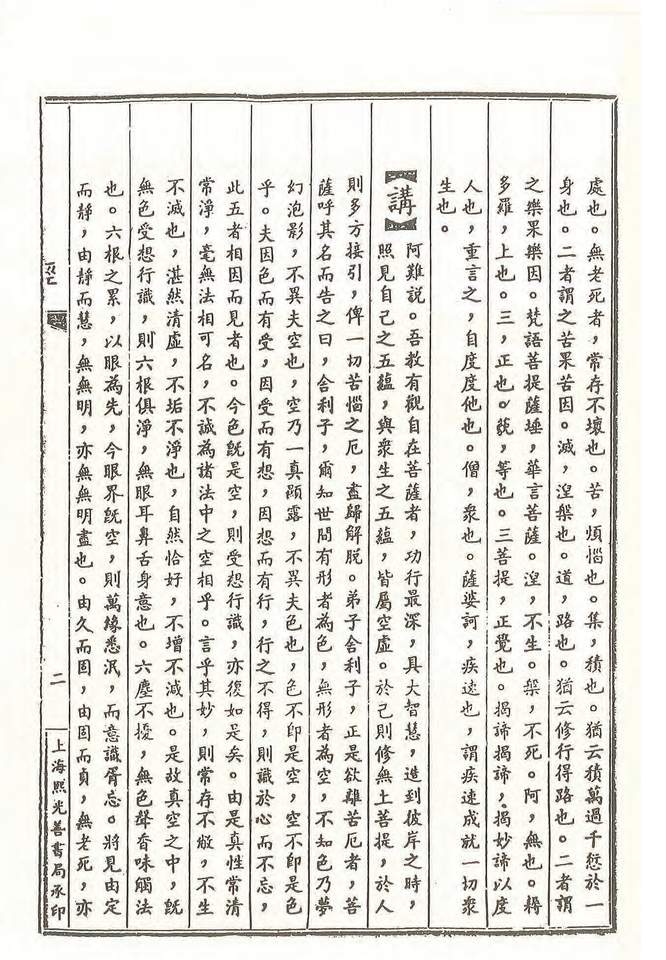 處也。無老死者，常存不壞也。苦，煩惱也。集，積也。猶云積萬過千愆於一
身也。二者謂之苦果苦因。滅，涅槃也。道，路也。猶云修行得路也。二者謂
之樂果樂因。梵語菩提薩埵，華言菩薩。涅，不生。槃，不死。阿，無也。耨
多羅，上也。三，正也。藐，等也。三菩提，正覺也。揭諦揭諦，揭妙諦以度
人也，重言之，自度度他也。僧，衆也。薩婆訶，疾速也，謂疾速成就一切衆
生也。
【講】阿難說。吾教有觀自在菩薩者，功行最深，具大智慧，造到彼岸之時，
照見自己之五蘊，與衆生之五蘊，皆屬空虛。於己則修無上菩提，於人
則多方接引，俾一切苦惱之厄，盡歸解脫。弟子舍利子，正是欲離苦厄者，菩
薩呼其名而告之曰，舍利子，爾知世間有形者為色，無形者為空，不知色乃夢
幻泡影，不異夫空也，空乃一真顯露，不異夫色也，色不卽是空，空不卽是色
乎。夫因色而有受，因受而有想，因想而有行，行之不得，則識於心而不忘，
此五者相因而見者也。今色旣是空，則受想行識，亦復如是矣。由是真性常清
常淨，毫無法相可名，不誠為諸法中之空相乎。言乎其妙，則常存不敝，不生
不滅也，湛然清虛，不垢不淨也，自然恰好，不增不減也。是故真空之中，旣
無色受想行識，則六根俱淨，無眼耳鼻舌身意也。六塵不擾，無色聲香味觸法
也。六根之累，以眼為先，今眼界旣空，則萬緣悉泯，而意識胥忘。將見由定
而靜，由靜而慧，無無明，亦無無明盡也。由久而固，由固而貞，無老死，亦
經
二
上海熙光善書局承印